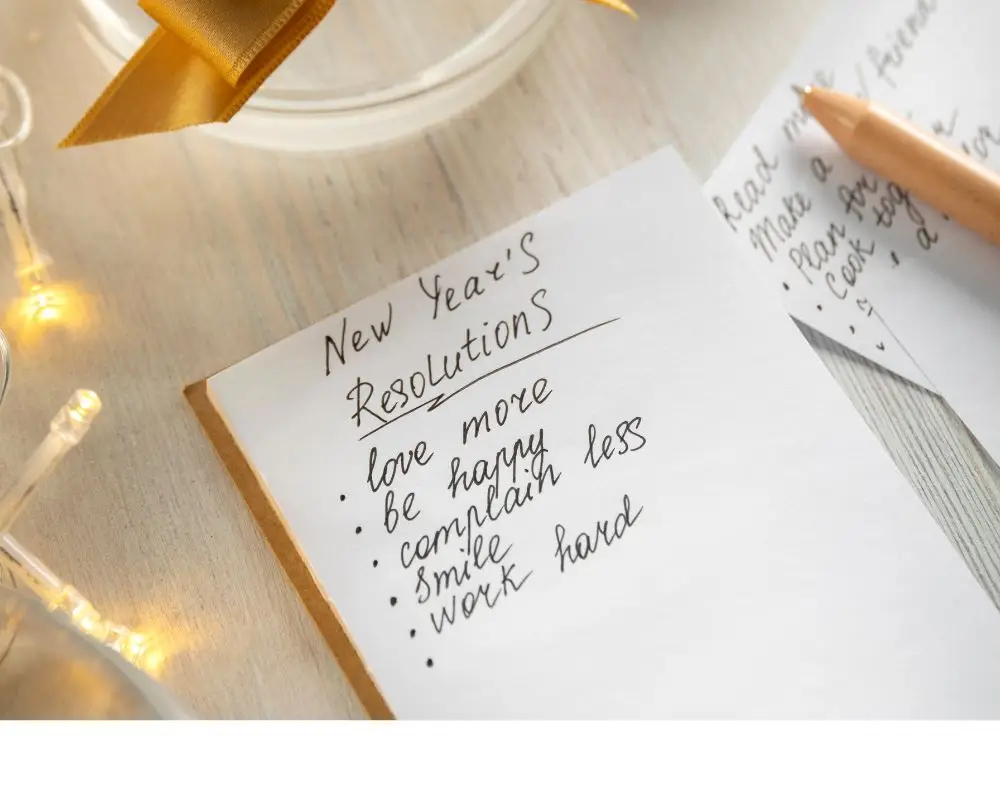 New Year's
Resolutions
• love more
• be happy
• complain less
• smile
• work hard
•
Read
Make a
• Plan for
• Cook